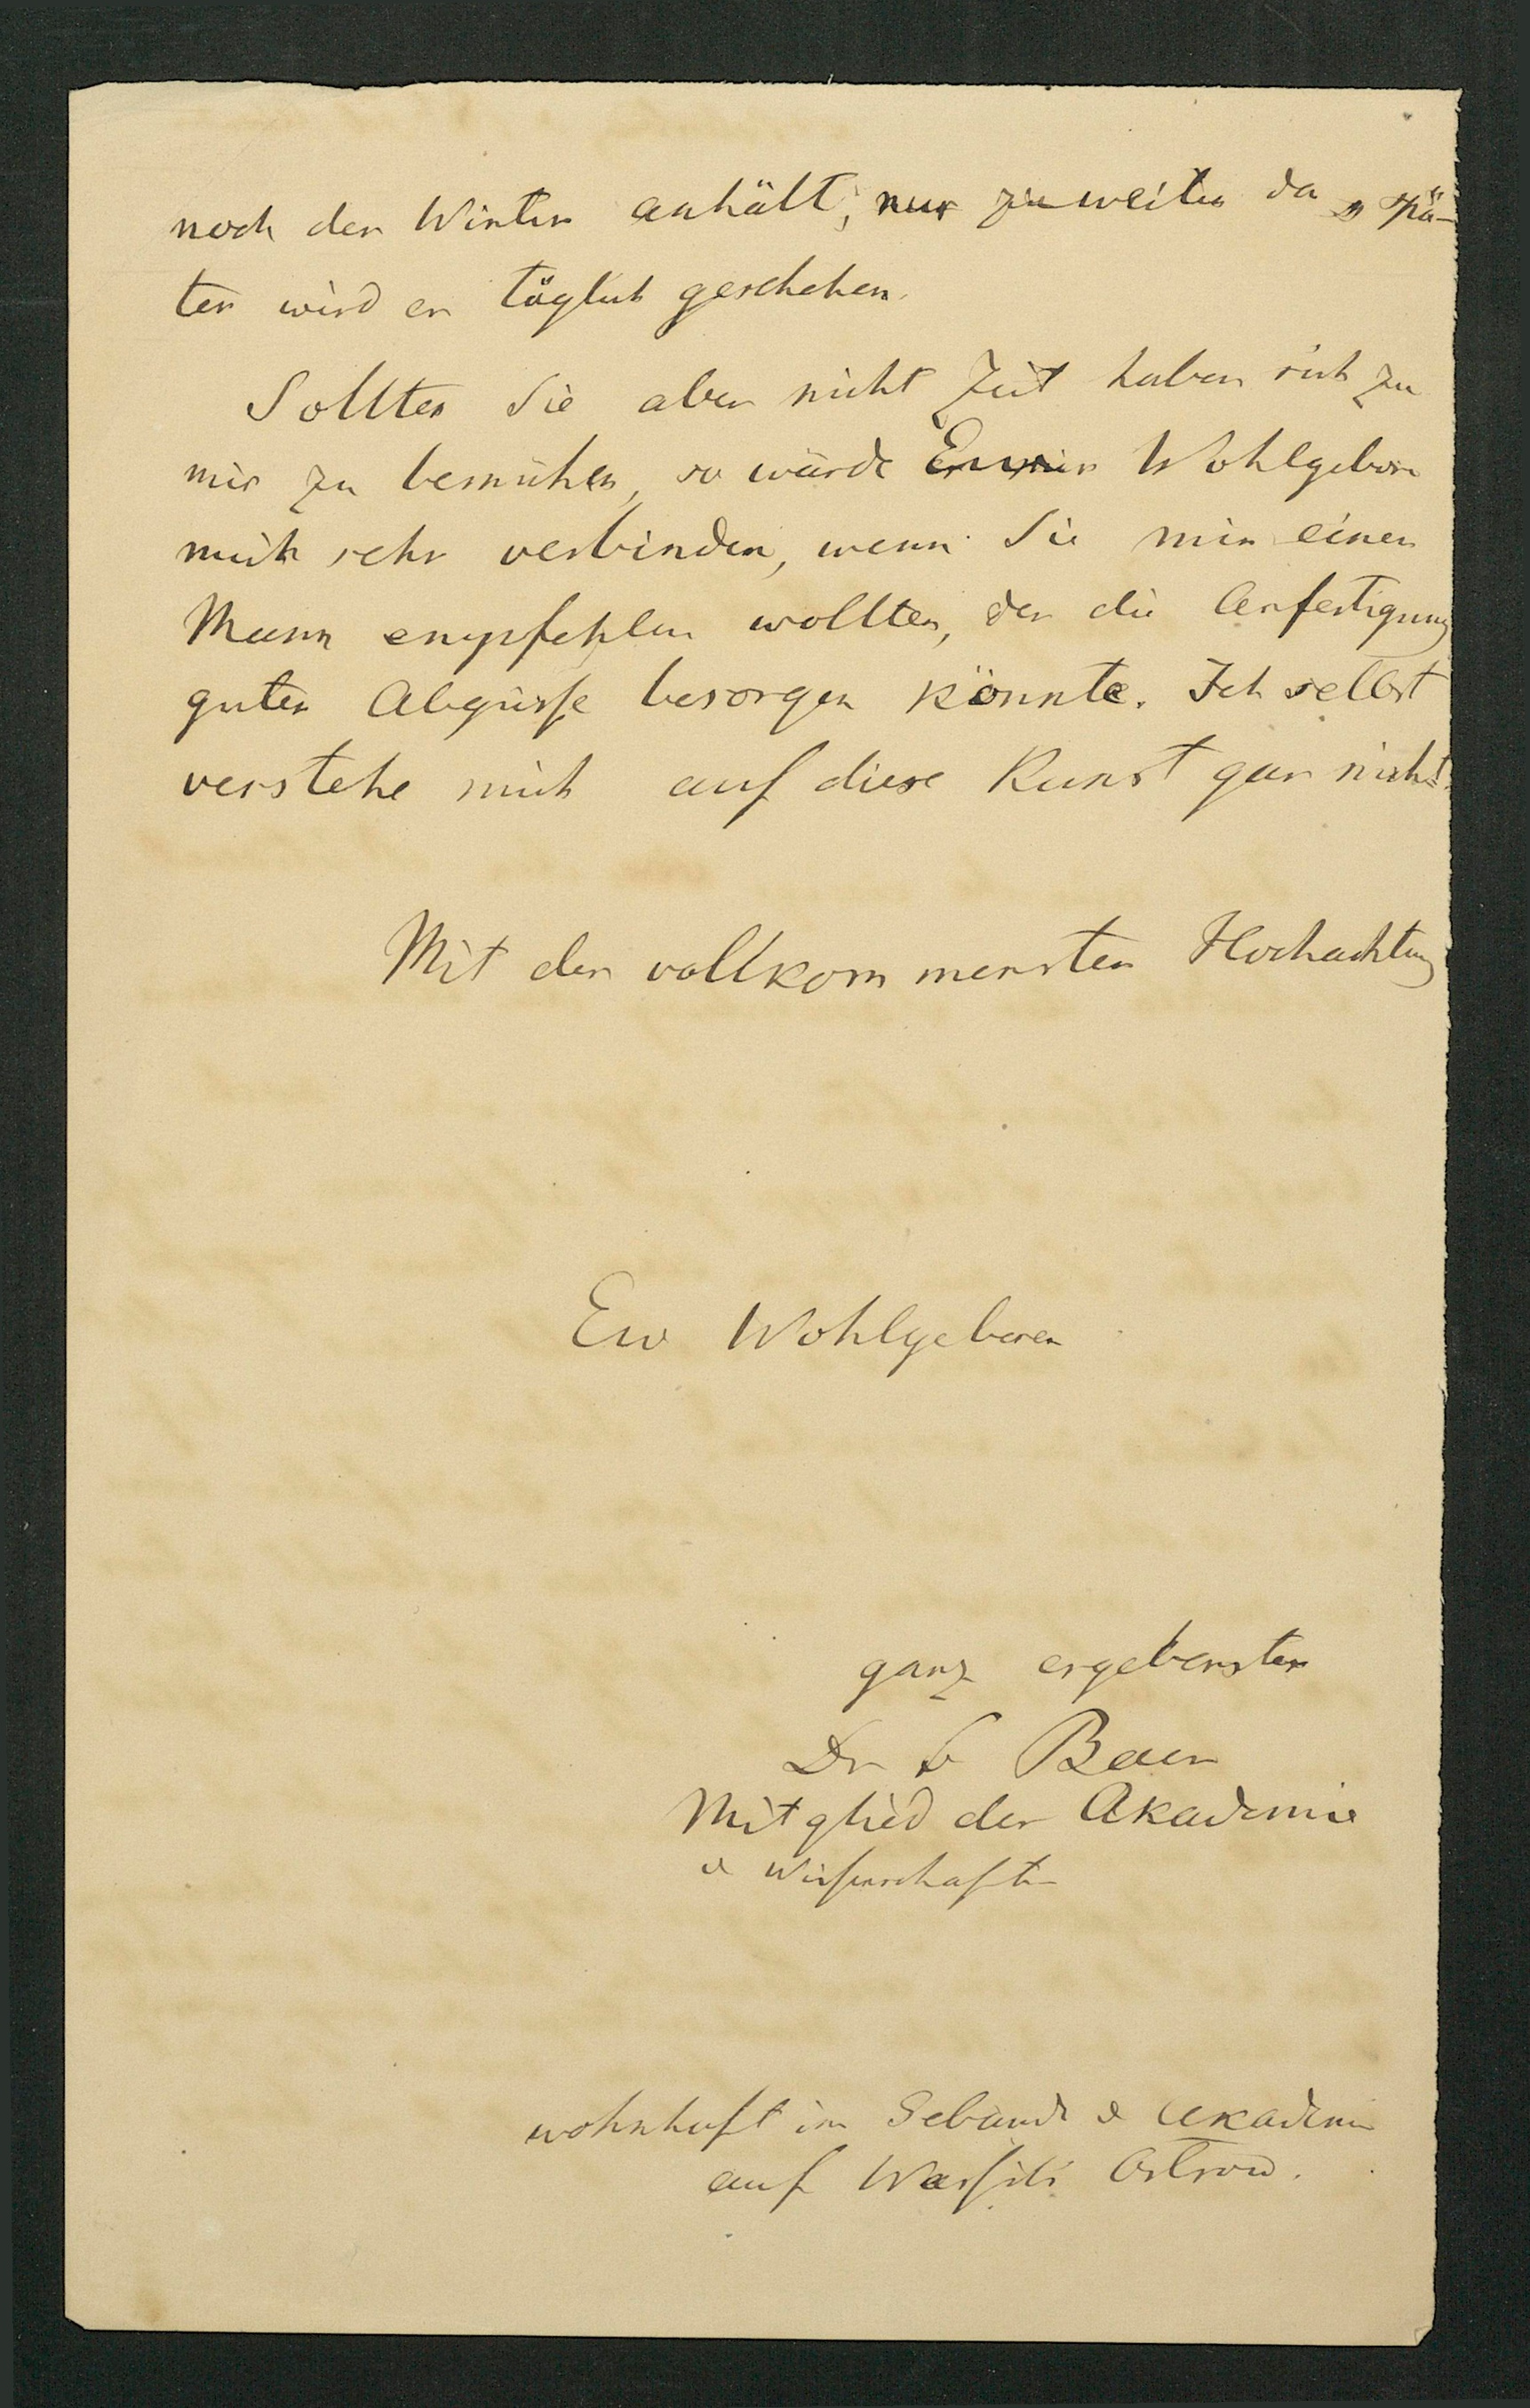 noch der Winter anhält, nur zuweilen da, spä-
ter wird er täglich geschehen.
Sollten Sie aber nicht Zeit haben sich zu
mir zu bemühen, so würde Wohlgeboren
mich sehr verbinden, wenn Sie mir einen
Mann empfehlen wollten, der die Anfertigung
guter Abgüsse besorgen könnte. Ich selbst
verstehe mich auf diese Kunst gar nicht.
Mit der vollkommensten Hochachtung
Ew Wohlgeboren
ganz ergebenster
Dr v Baer
Mitglied der Akademie
d Wissenschaften
wohnhaft im Gebäude d Akademie
auf Wassili Ostrow.